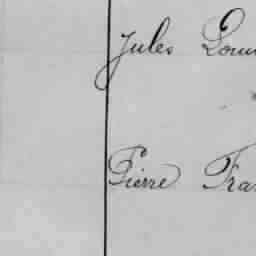 Jules Loui
Pierre Fra